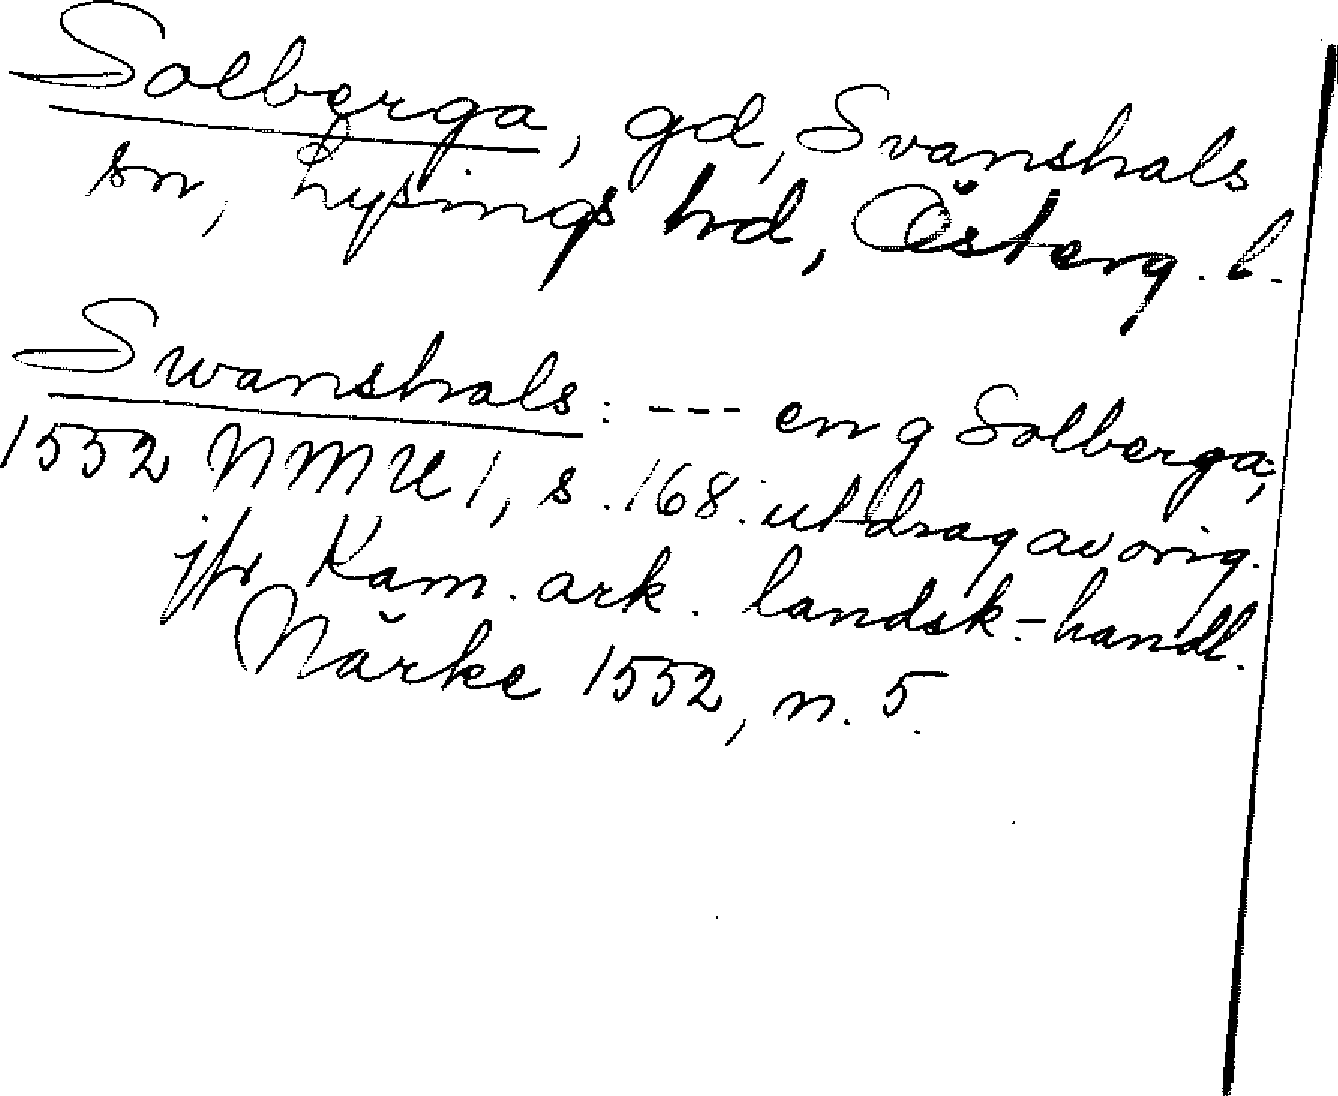 Solberga, gd, Svanshals
sn, Lysings hd, Österg. l.
Swanshals: --- en g Solberga,
1552 NMU 1, s. 168. utdrag av orig.
jfr Kam. ark. landsk.-handl.
Närke 1552, n. 5.